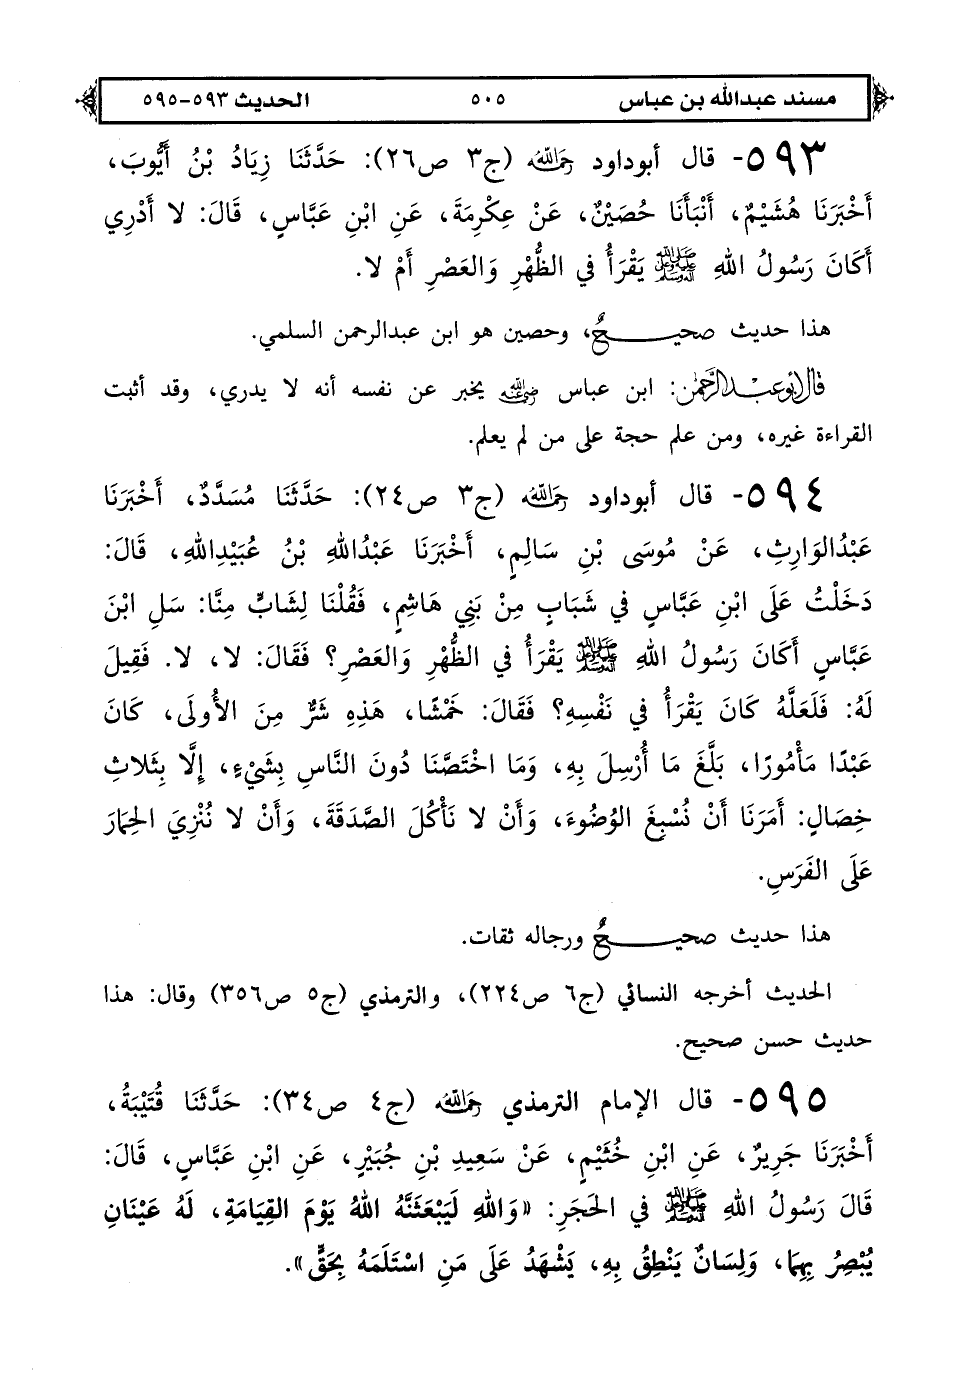 مسند عبدالله بن عباس ٥٠٥ الحديث ٥٩٣-٥٩٥
٥٩٣- قال أبوداود رَحِمَهُ اللهُ (ج٣ ص٢٦): حَدَّثَنَا زِيَادُ بْنُ أَيُّوبَ،
أَخْبَرَنَا هُشَيْمٌ، أَنْبَأَنَا حُصَيْنٌ، عَنْ عِكْرِمَةَ، عَنِ ابْنِ عَبَّاسٍ، قَالَ: لا أَدْرِي
أَكَانَ رَسُولُ اللهِ ﷺ يَقْرَأُ في الظُّهْرِ وَالعَصْرِ أَمْ لا.
هذا حديث صحيحٌ، وحصين هو ابن عبدالرحمن السلمي.
قال أبو عبد الرحمن: ابن عباس رضي الله عنه يخبر عن نفسه أنه لا يدري، وقد أثبت
القراءة غيره، ومن علم حجة على من لم يعلم.
٥٩٤- قال أبوداود رَحِمَهُ اللهُ (ج٣ ص٢٤): حَدَّثَنَا مُسَدَّدٌ، أَخْبَرَنَا
عَبْدُالوَارِثِ، عَنْ مُوسَى بْنِ سَالِمٍ، أَخْبَرَنَا عَبْدُاللهِ بْنُ عُبَيْدِاللهِ، قَالَ:
دَخَلْتُ عَلَى ابْنِ عَبَّاسٍ في شَبَابٍ مِنْ بَنِي هَاشِمٍ، فَقُلْنَا لِشَابٍّ مِنَّا: سَلِ ابْنَ
عَبَّاسٍ أَكَانَ رَسُولُ اللهِ ﷺ يَقْرَأُ في الظُّهْرِ وَالعَصْرِ؟ فَقَالَ: لا، لا. فَقِيلَ
لَهُ: فَلَعَلَّهُ كَانَ يَقْرَأُ في نَفْسِهِ؟ فَقَالَ: خَمْشًا، هَذِهِ شَرٌّ مِنَ الأُولَى، كَانَ
عَبْدًا مَأْمُورًا، بَلَّغَ مَا أُرْسِلَ بِهِ، وَمَا اخْتَصَّنَا دُونَ النَّاسِ بِشَيْءٍ، إِلَّا بِثَلاثِ
خِصَالٍ: أَمَرَنَا أَنْ نُسْبِغَ الوُضُوءَ، وَأَنْ لا نَأْكُلَ الصَّدَقَةَ، وَأَنْ لا نُنْزِيَ الحِمَارَ
عَلَى الفَرَسِ.
هذا حديث صحيحٌ ورجاله ثقات.
الحديث أخرجه النسائي (ج٦ ص٢٢٤)، والترمذي (ج٥ ص٣٥٦) وقال: هذا
حديث حسن صحيح.
٥٩٥- قال الإمام الترمذي رَحِمَهُ اللهُ (ج٤ ص٣٤): حَدَّثَنَا قُتَيْبَةُ،
أَخْبَرَنَا جَرِيرٌ، عَنِ ابْنِ خُثَيْمٍ، عَنْ سَعِيدِ بْنِ جُبَيْرٍ، عَنِ ابْنِ عَبَّاسٍ، قَالَ:
قَالَ رَسُولُ اللهِ ﷺ في الحَجَرِ: «وَاللهِ لَيَبْعَثَنَّهُ اللهُ يَوْمَ القِيَامَةِ، لَهُ عَيْنَانِ
يُبْصِرُ بِهِمَا، وَلِسَانٌ يَنْطِقُ بِهِ، يَشْهَدُ عَلَى مَنِ اسْتَلَمَهُ بِحَقٍّ».